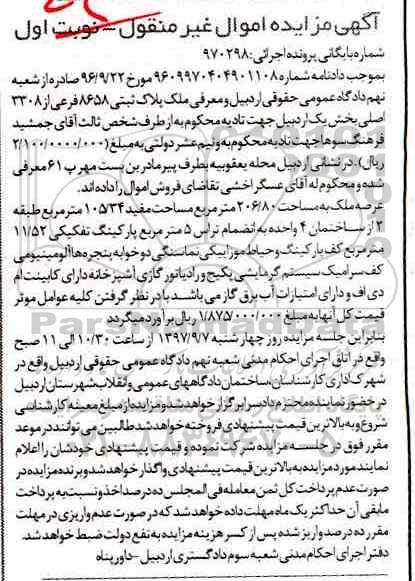 آگهی مزایده اموال غیر منقول – نوبت اول
شماره بایگانی پرونده اجرائی: ۹۷۰۲۹۸
بموجب دادنامه شماره ۹۶۰۹۹۷۰۴۰۴۹۰۱۱۰۸ مورخ ۹۶/۹/۲۲ صادره از شعبه
نهم دادگاه عمومی حقوقی اردبیل و معرفی ملک پلاک ثبتی ۸۶۵۸ فرعی از ۳۳۰۸
اصلی بخش یک اردبیل جهت تادیه محکوم به از طرف شخص ثالث آقای جمشید
فرهنگ سوها جهت تادیه محکوم به و نیم عشر دولتی به مبلغ (۲/۱۰۰/۰۰۰/۰۰۰
ریال). در نشانی اردبیل محله یعقوبیه بطرف پیرمادرین بست مهر پ ۶۱ معرفی
شده و محکوم له آقای عسگر اخشی تقاضای فروش اموال را داده اند.
عرصه ملک به مساحت ۲۰۶/۸۰ متر مربع مساحت مفید ۱۰۵/۳۴ متر مربع طبقه
۲ از ساختمان ۴ واحده به انضمام تراس ۵ متر مربع پارکینگ تفکیکی ۱۱/۵۲
متر مربع کف پارکینگ و حیاط موزاییکی نما سنگی دو خوابه پنجره ها آلومینیومی
کف سرامیک سیستم گرمایشی پکیج و رادیاتور گازی آشپزخانه دارای کابینت ام
دی اف و دارای امتیازات آب برق گاز می باشد با در نظر گرفتن کلیه عوامل موثر
قیمت کل آنها به مبلغ ۱/۸۷۵/۰۰۰/۰۰۰ ریال برآورد میگردد
بنابراین جلسه مزایده روز چهار شنبه ۱۳۹۷/۹/۷ از ساعت ۱۰/۳۰ الی ۱۱ صبح
واقع در اتاق اجرای احکام مدنی شعبه نهم دادگاه عمومی حقوقی اردبیل واقع در
شهرک اداری کارشناسان ساختمان دادگاههای عمومی و انقلاب شهرستان اردبیل
در حضور نماینده محترم دادسرا برگزار خواهد شد و مزایده از مبلغ معینه کارشناسی
شروع و به بالاترین قیمت پیشنهادی فروخته خواهد شد طالبین می توانند در موعد
مقرر فوق در جلسه مزایده شرکت نموده و قیمت پیشنهادی خودشان را اعلام
نمایند مورد مزایده به بالاترین قیمت پیشنهادی واگذار خواهد شد و برنده مزایده در
صورت عدم پرداخت کل ثمن معامله فی المجلس ده درصد اخذ و نسبت به پرداخت
مابقی آن حداکثر یک ماه مهلت داده خواهد شد که در صورت عدم واریزی در مهلت
مقرر ده درصد واریز شده پس از کسر هزینه مزایده به نفع دولت ضبط خواهد شد.
دفتر اجرای احکام مدنی شعبه سوم دادگستری اردبیل – داور پناه
ParsNamadData